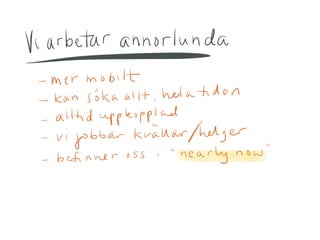 Vi arbetar annorlunda
- mer mobilt
- kan söka allt, hela tiden
- alltid uppkopplad
- vi jobbar kvällar/helger
- befinner oss i "nearly now"